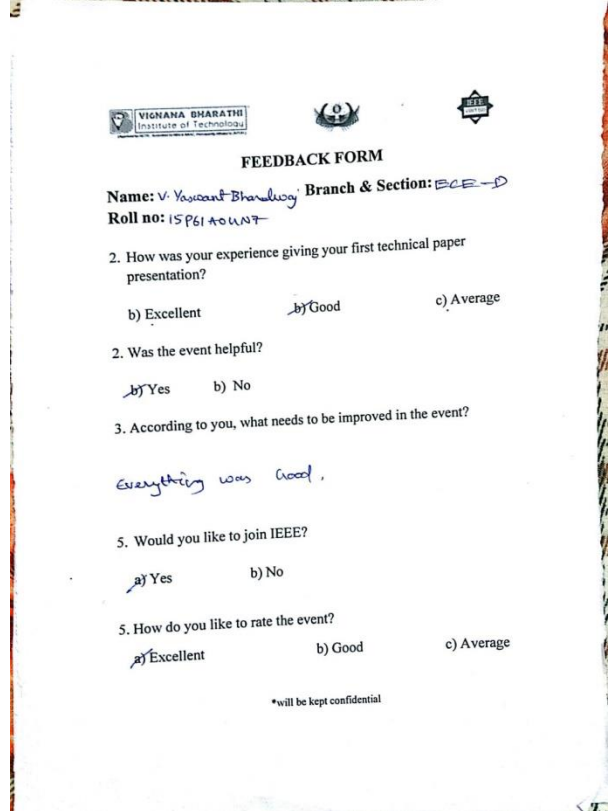 VIGNANA BHARATHI
Institute of Technology
IEEE
FEEDBACK FORM
Name: V. Yaswant Bharadwaj Branch & Section: ECE-D
Roll no: 15P61A04N7
2. How was your experience giving your first technical paper
presentation?
b) Excellent b) Good c) Average
2. Was the event helpful?
b) Yes b) No
3. According to you, what needs to be improved in the event?
Everything was Good.
5. Would you like to join IEEE?
a) Yes b) No
5. How do you like to rate the event?
a) Excellent b) Good c) Average
*will be kept confidential